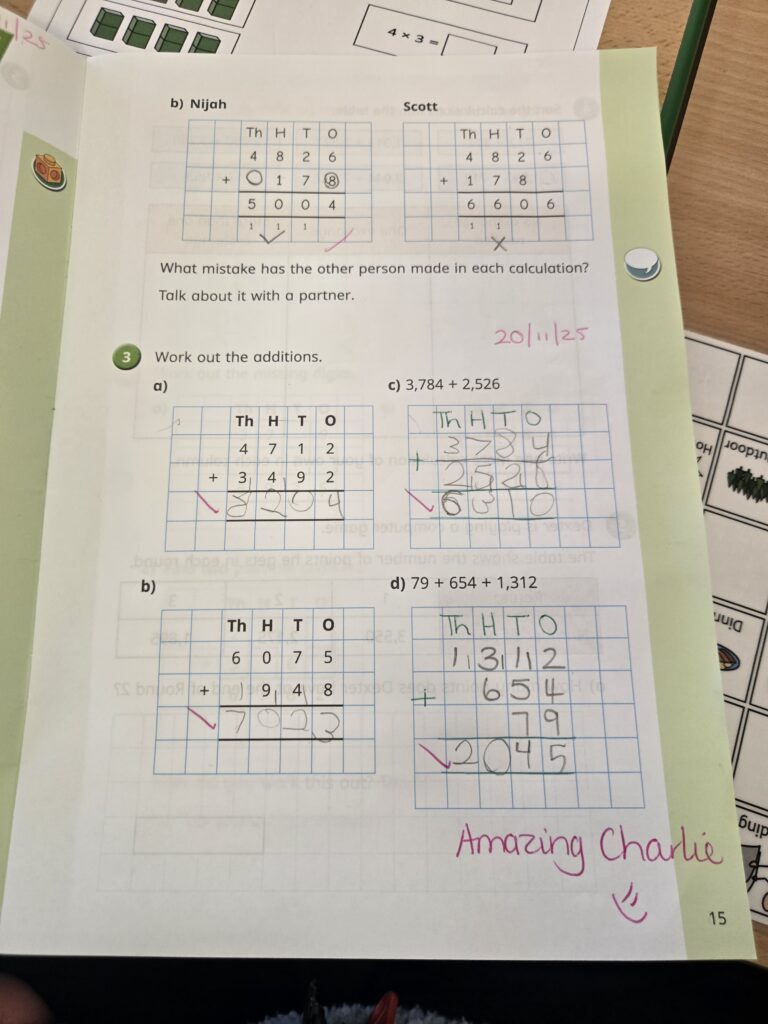 11/25
4 × 3 =
b) Nijah
Th H T O
4 8 2 6
+ 0 1 7 8
5 0 0 4
1 1 1
Scott
Th H T O
4 8 2 6
+ 1 7 8
6 6 0 6
1 1
What mistake has the other person made in each calculation?
Talk about it with a partner.
20/11/25
3 Work out the additions.
a)
Th H T O
4 7 1 2
+ 3 4 9 2
8 2 0 4
c) 3,784 + 2,526
Th H T O
3 7 8 4
+ 2 5 2 6
6 3 1 0
b)
Th H T O
6 0 7 5
+ 9 4 8
7 0 2 3
d) 79 + 654 + 1,312
Th H T O
1 3 1 2
+ 6 5 4
7 9
2 0 4 5
Amazing Charlie
15
utdoor
Dinn
ding